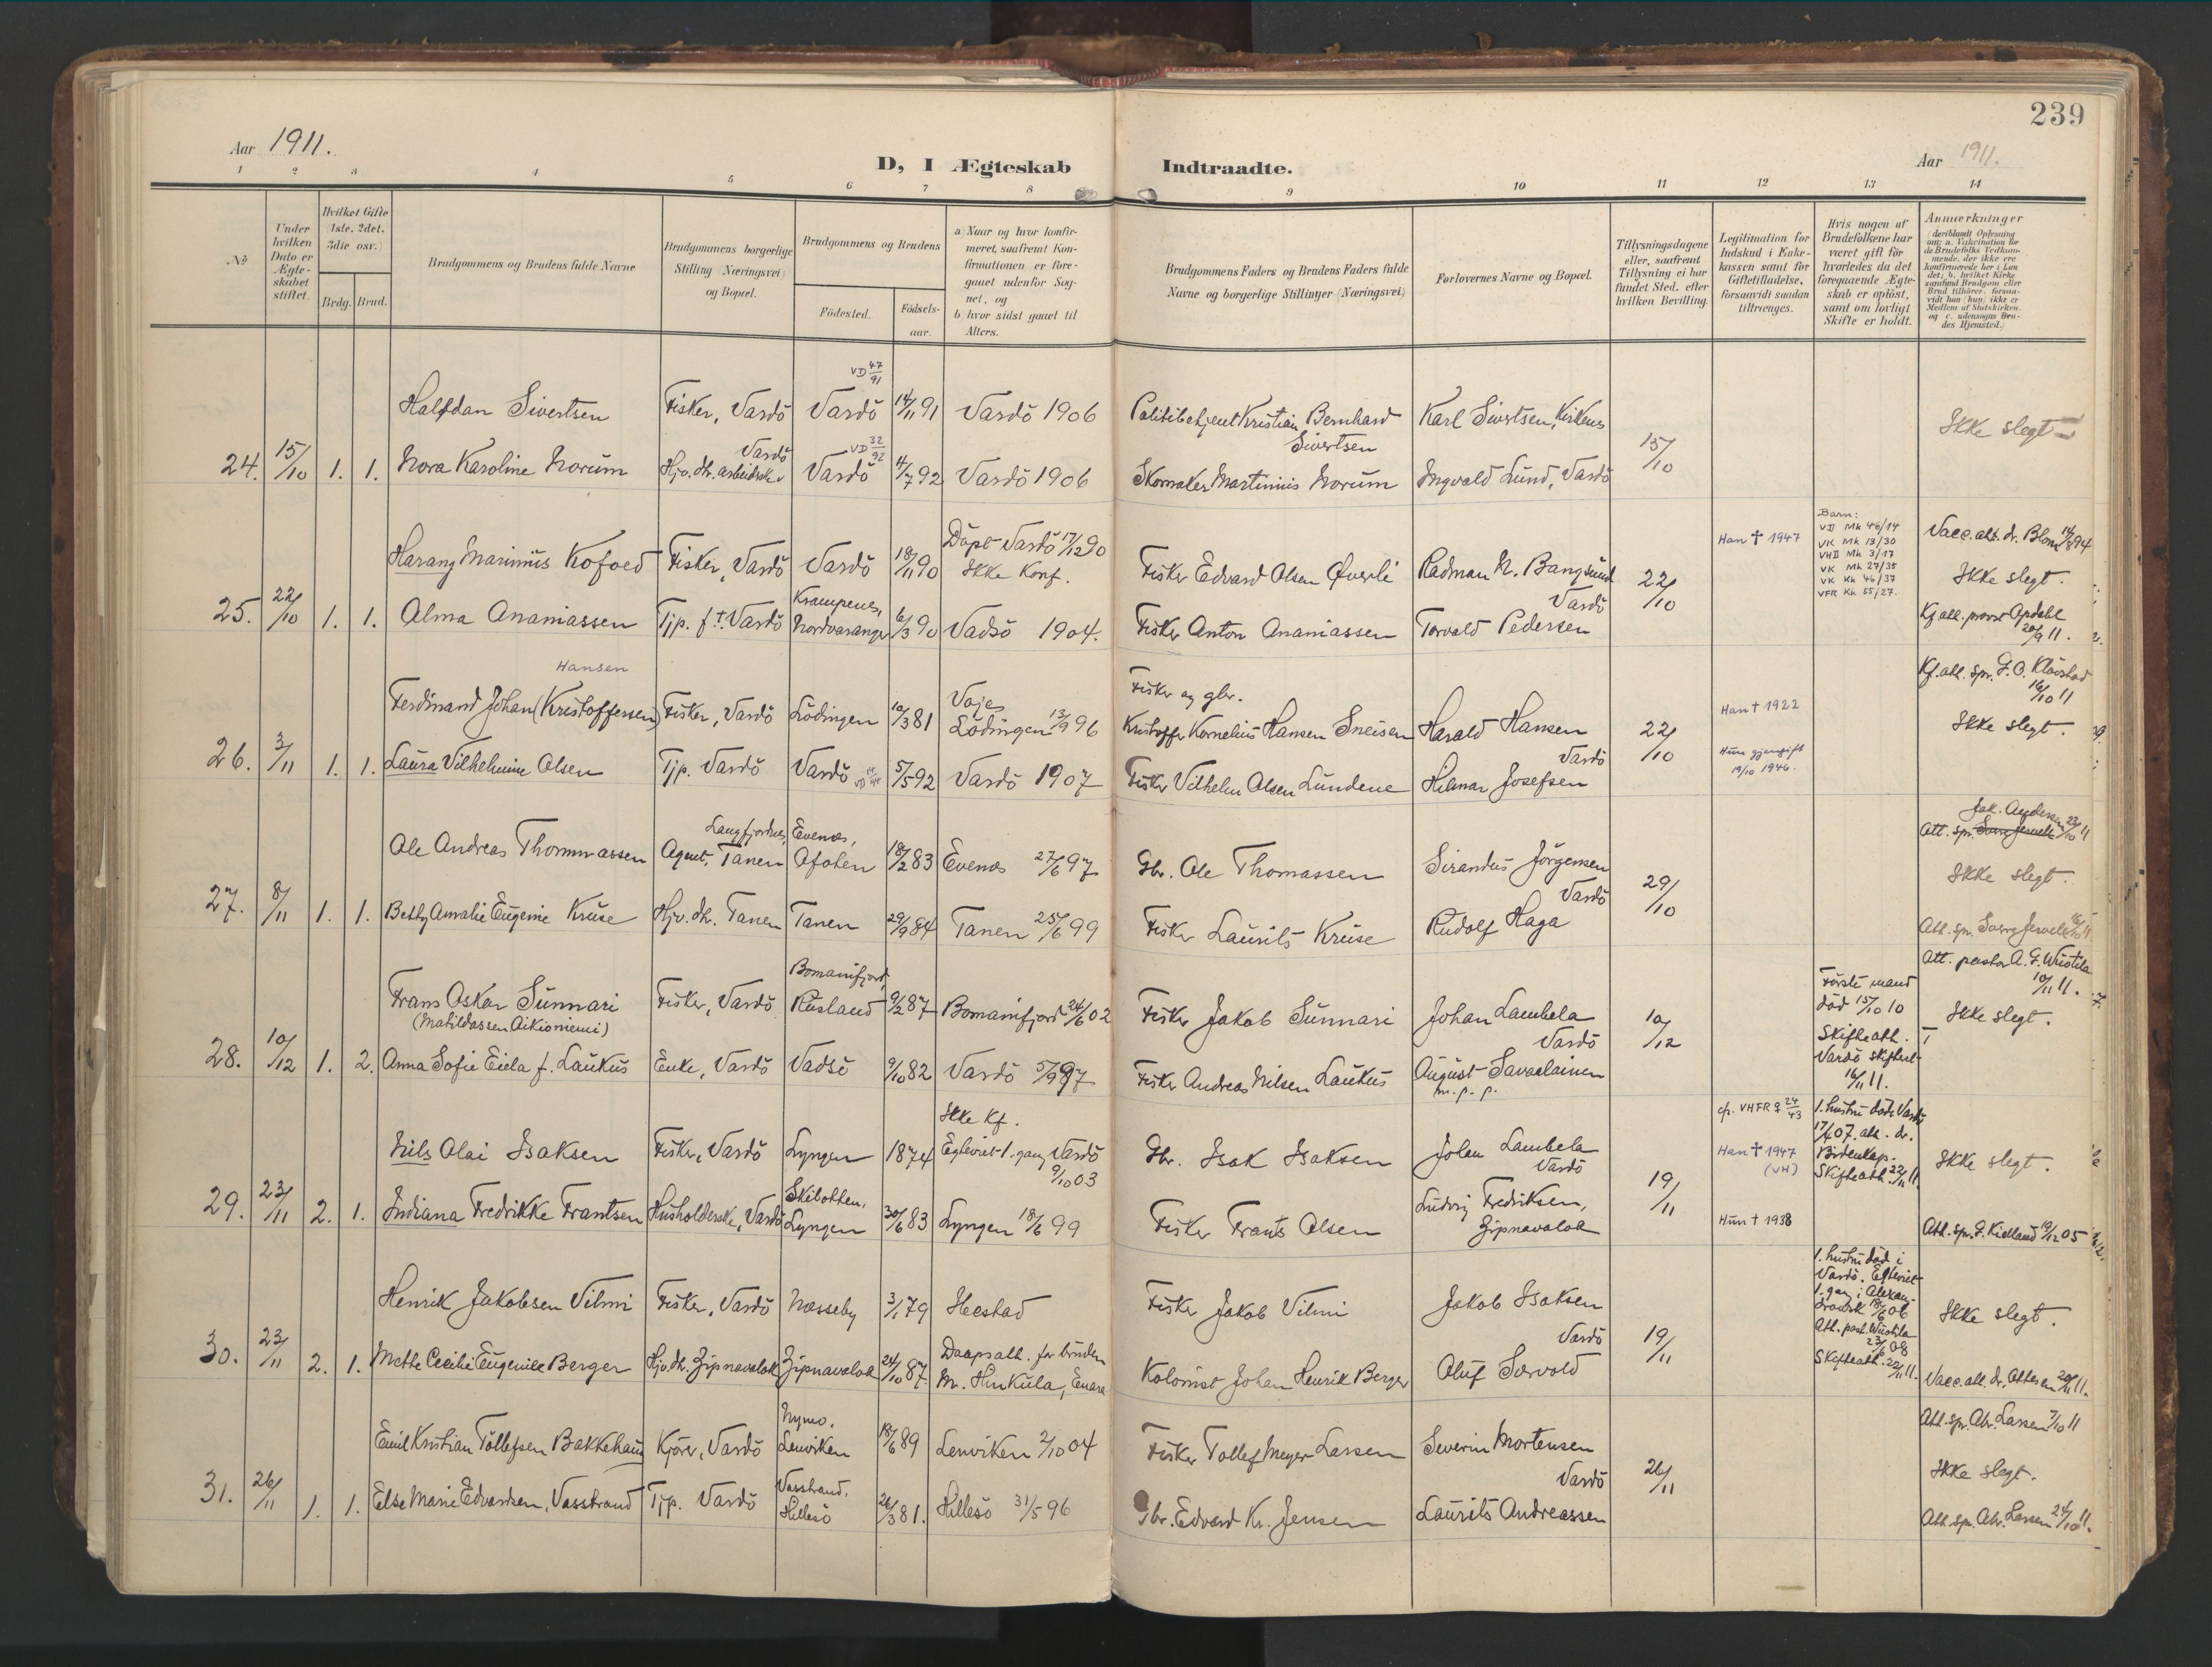 239
Aar 1911.
D, I Ægteskab Indtraadte.
Aar 1911.
1 2 3 4 5 6 7 8 9 10 11 12 13 14
No
Under hvilken Dato er Ægteskabet stiftet.
Hvilket Gifte (1ste, 2det, 3die osv.)
Brdg. Brud.
Brudgommens og Brudens fulde Navne
Brudgommens borgerlige Stilling (Næringsvei) og Bopæl.
Brudgommens og Brudens
Födested.
Födselsaar.
a) Naar og hvor konfirmeret, saafremt Konfirmationen er foregaaet udenfor Sognet, og
b) hvor sidst gaaet til Alters.
Brudgommens Faders og Brudens Faders fulde Navne og borgerlige Stillinger (Næringsvei)
Forlovernes Navne og Bopæl.
Tillysningsdagene eller, saafremt Tillysning ei har fundet Sted, efter hvilken Bevilling.
Legitimation for Indskud i Enkekassen samt for Giftetilladelse, forsaavidt saadan tiltrænges.
Hvis nogen af Brudefolkene har været gift för hvorledes da det foregaaende Ægteskab er oplöst, samt om lovligt Skifte er holdt.
Anmærkninger (deriblandt Oplysning om: a. Vakcination for de Brudefolks Vedkommende, der ikke ere konfirmerede her i Landet; b. hvilket Kirkesamfund Brudgom eller Brud tilhörer, forsaavidt han (hun) ikke er Medlem af Statskirken, og c. udensogns Brudes Hjemsted.)
VD 47/91
Halfdan Sivertsen Fisker, Vardö Vardö 14/11 91 Vardö 1906 Politibetjent Kristian Bernhard Sivertsen Karl Sivertsen, Kirkenes Ikke slegt
VD 32/92
24. 15/10 1. 1. Nora Karoline Norum Vardö Hjv. dtr. Vardö 11/7 92 Vardö 1906 Skomaker Martinius Norum Ingvald Lund, Vardö 15/10
Harang Marinius Kofoed Fisker, Vardö Vardö 18/11 90 Döpt Vardö 17/12 90 Ikke Konf. Fisker Edvard Olsen Överli Radman N. Bangsund Vardö Han † 1947
Barn:
VD Mk 46/14
VK Mk 13/30
VHD Mk 3/17
VK Mk 27/35
VK Kk 46/37
VFR Kk 55/27.
Vacc.att. dr. Blom 14/8 94
Ikke slegt.
25. 22/10 1. 1. Alma Ananiassen Tjp. f.t. Vardö Krampenes, Nordvaranger 6/3 90 Vadsö 1904. Fisker Anton Ananiassen Torvald Pedersen 22/10
Kf att. provst Opdahl 20/9 11.
Hansen
Ferdinand Johan (Kristoffersen) Fisker, Vardö Lödingen 10/3 81 Lödingen 13/9 96 Fisker og gbr. Kristoffer Kornelius Hansen Sneisen Harald Hansen Vardö Han † 1922
Ikke slegt.
26. 3/11 1. 1. Laura Vilhelmine Olsen Tjp. Vardö Vardö 5/5 92 Vardö 1907 Fisker Vilhelm Olsen Lundene Hilmar Josefsen 22/10 Hun gjengift 19/10 1946.
Ole Andreas Thommassen Agent, Langfjordnes, Tanen Evenes, Ofoten 18/2 83 Evenes 27/6 97 Gbr. Ole Thomassen Sirandus Jörgensen Vardö
Ikke slegt.
27. 8/11 1. 1. Betty Amalie Eugenie Kruse Hjv. dtr. Tanen Tanen 29/9 84 Tanen 25/6 99 Fisker Laurits Kruse Rudolf Haga 29/10
Frans Oskar Sunnari (Matildassen Aikioniemi) Fisker, Vardö Bomanifjord, Rusland 9/2 87 Bomanifjord 24/6 02 Fisker Jakob Sunnari Johan Lambela Vardö
Förste mand död 15/10 10 Skifteatt. Vardö skifteret 16/11 11.
Att. pastor A. G. Wiistila 10/11 11.
Ikke slegt.
28. 10/12 1. 2. Anna Sofie Eiela f. Laukus Enke, Vardö Vadsö 9/10 82 Vardö 5/9 97 Fisker Andreas Nilsen Laukus August Savaalainen m. p. p. 10/12
Nils Olai Isaksen Fisker, Vardö Lyngen 1874 Ikke Kf. Egteviet 1. gang Vardö 9/10 03 Gbr. Isak Isaksen Johan Lambela Vardö cf. VHFR 9 24/43 Han † 1947 (VH)
1. hustru död Vardö 17/4 07. att. dr. Skifteatt. 22/11 11
Ikke slegt.
29. 23/11 2. 1. Indiana Fredrikke Frantsen Husholderske, Vardö Skibotten, Lyngen 30/6 83 Lyngen 18/6 99 Fisker Frants Olsen Ludvig Fredriksen, Zipnavalok 19/11 Hun † 1938
Att. spr. G. Kielland 19/12 05
Henrik Jakobsen Vilmi Fisker, Vardö Nesseby 3/1 79 Fisker Jakob Vilmi Jakob Isaksen Vardö
1. hustru död i Vardö. Egteviet 1. gang i Alexandrowsk 18/6 06 Att. past. Wiistila 23/6 08 Skifteatt. 22/11 11.
Ikke slegt.
30. 23/11 2. 1. Mette Cecilie Eugenie Berger Hjv. dtr. Zipnavalok Zipnavalok 24/10 87 Daapsatt. for bruden Kolonist Johan Henrik Berger Oluf Sørvold 19/11
Vacc.att. dr. Ottesen 20/11 11.
Emil Kristian Tollefsen Bakkehaug Kjörer, Vardö Nymo, Lenviken 18/6 89 Lenviken 2/10 04 Fisker Tollef Meyer Larsen Severin Mortensen Vardö
Att. spr. Abr. Larsen 7/10 11
Ikke slegt.
31. 26/11 1. 1. Else Marie Edvardsen, Vasstrand Tjp. Vardö Vasstrand, Hillesö 26/3 81. Hillesö 31/5 96 Gbr. Edvard Kr. Jensen Laurits Andreassen 26/11
Att. spr. Abr. Larsen 24/10 11.